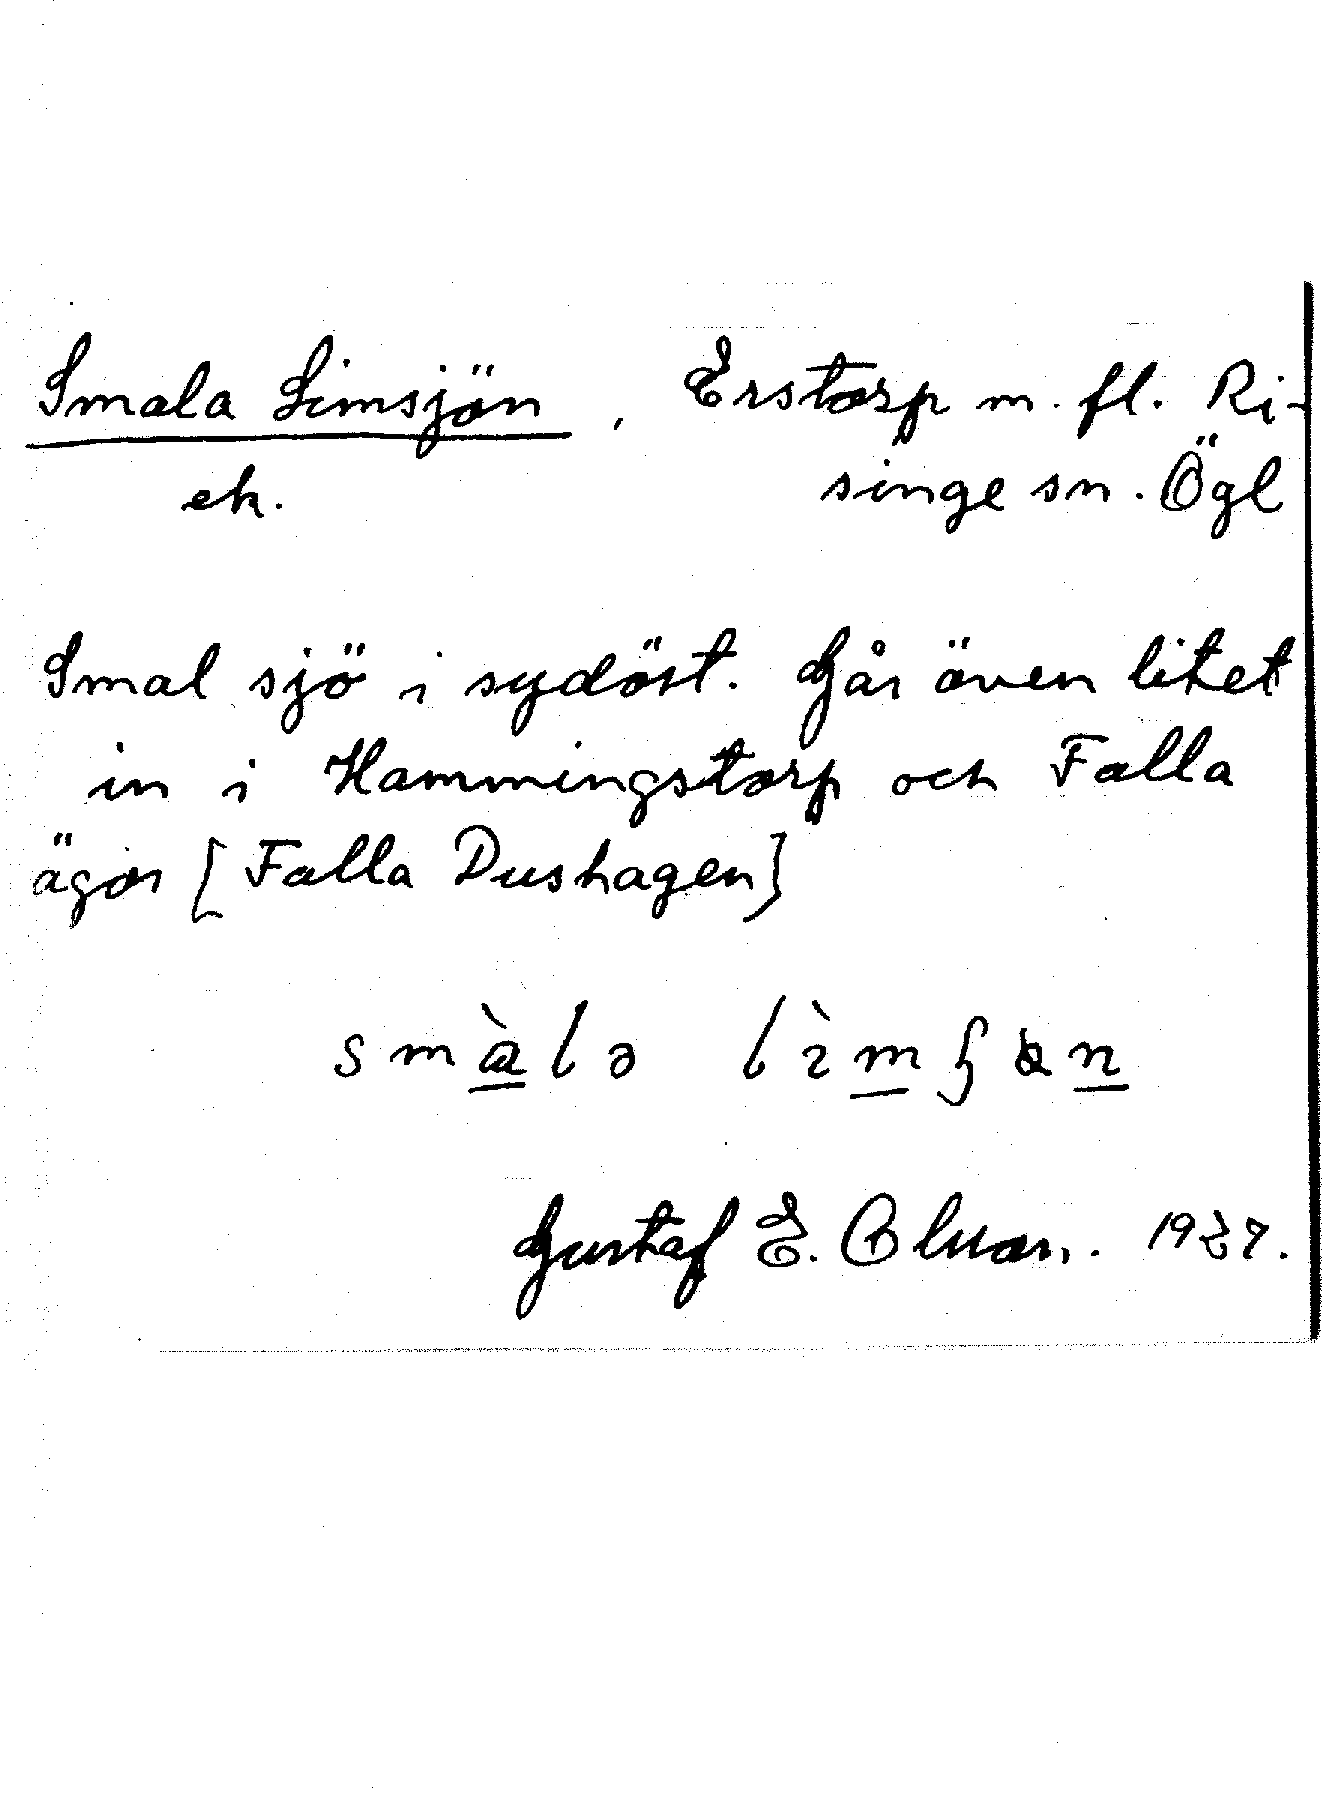 Smala Limsjön, Erstorp m. fl. Ri-
ek. singe sn. Ögl
Smal sjö i sydöst. Går även litet
in i Hammingstorp och Falla
ägor [Falla Dushagen]
smàlə lìmʂɵn
Gustaf E. 1927.